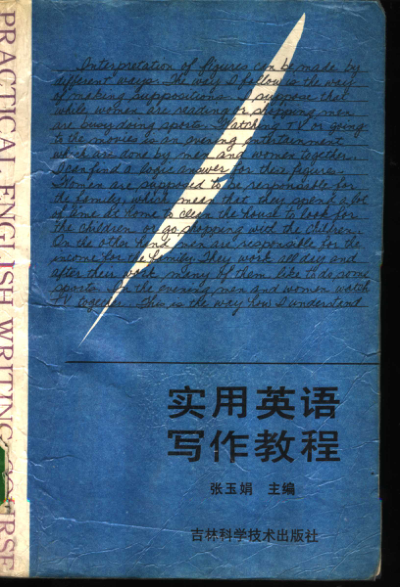 PRACTICAL ENGLISH WRITING COURSE
Interpretation of figures can be made by
different ways. The way I follow is the way
of making suppositions. I suppose that
while women are reading or shopping men
are busy doing sports. Watching TV or going
to the movies is an evening entertainment
which are done by men and women together.
I can find a logic answer for these figures.
Women are supposed to be responsible for
the family, which mean that they spend a lot
of time at home to clean the house to look for
the children or go shopping with the children.
On the other hand men are responsible for the
income for the family. They work all day and
after their work many of them like to do some
sports. In the evening, men and women watch
TV together. This is the way how I understand
实用英语
写作教程
张玉娟 主编
吉林科学技术出版社